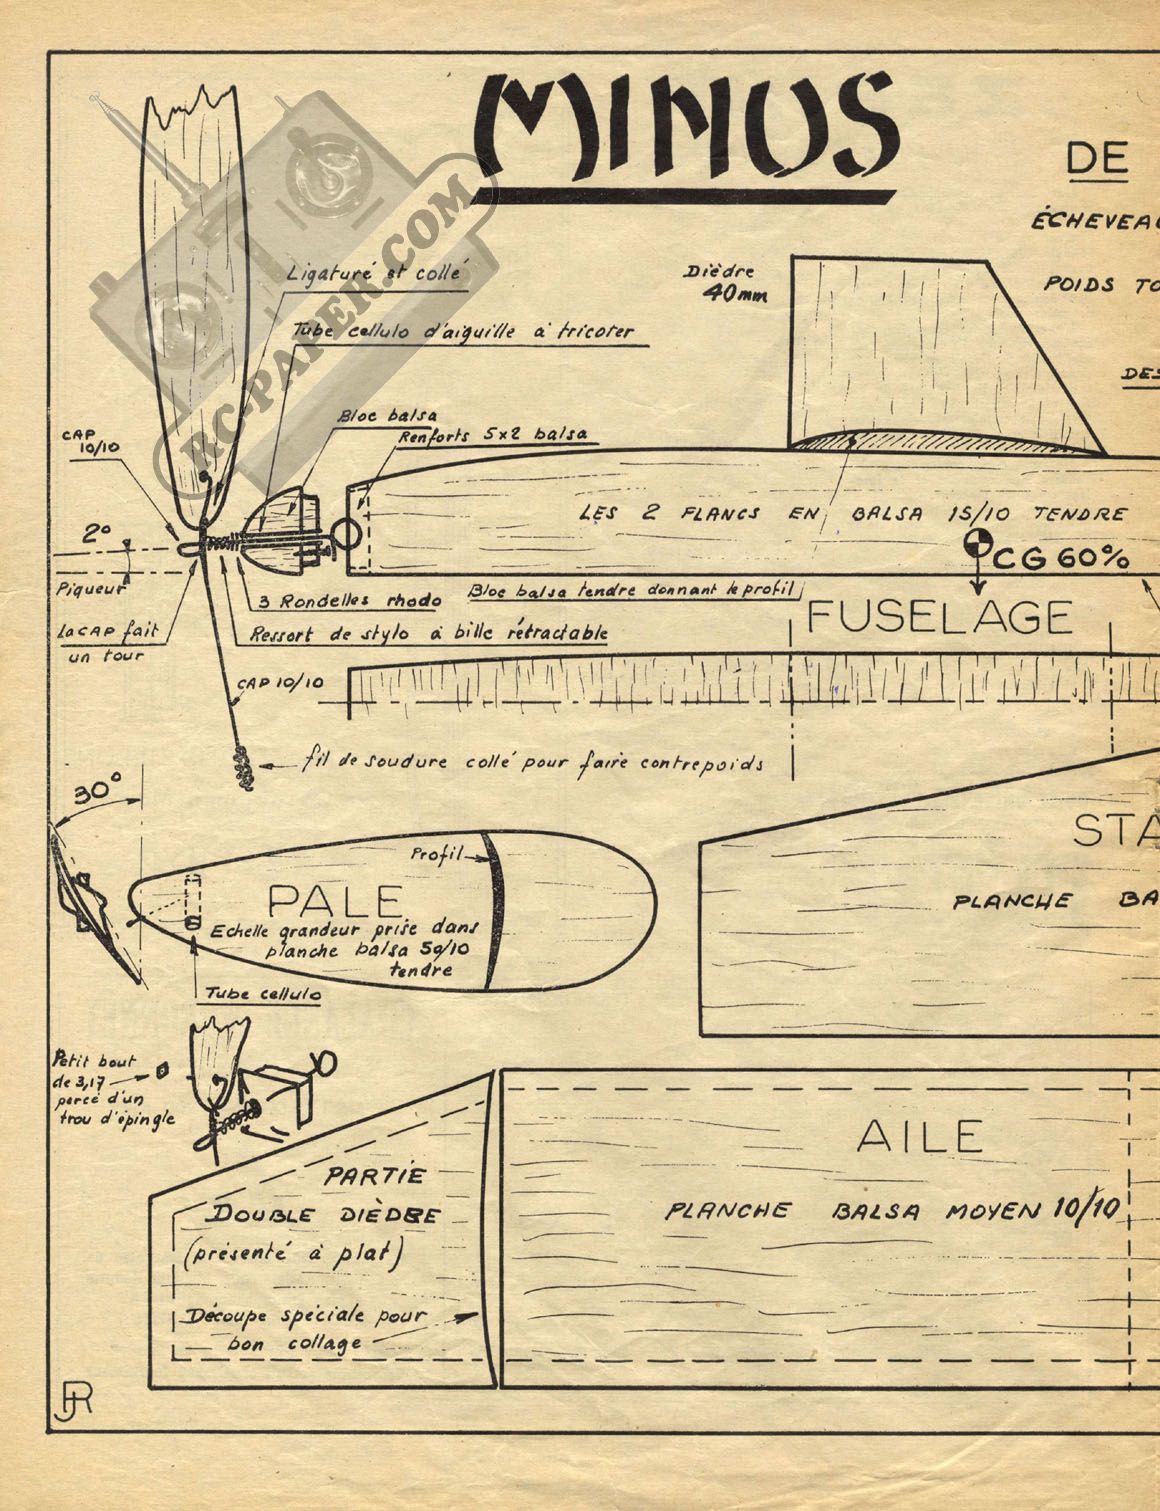 MINUS
DE
ÉCHEVEA
POIDS TO
DES
RC-PAPER.COM
Ligaturé et collé
Tube cellulo d'aiguille à tricoter
Dièdre
40mm
Bloc balsa
Renforts 5x2 balsa
CAP
10/10
2°
Piqueur
LES 2 FLANCS EN BALSA 15/10 TENDRE
CG 60%
Bloc balsa tendre donnant le profil
3 Rondelles rhodo
La CAP fait
un tour
Ressort de stylo à bille rétractable
FUSELAGE
CAP 10/10
fil de soudure collé pour faire contrepoids
30°
Profil
PALE
Echelle grandeur prise dans
planche balsa 50/10
tendre
Tube cellulo
STA
PLANCHE BA
Petit bout
de 3,17
percé d'un
trou d'épingle
PARTIE
DOUBLE DIÈDRE
(présenté à plat)
Découpe spéciale pour
bon collage
AILE
PLANCHE BALSA MOYEN 10/10
JR